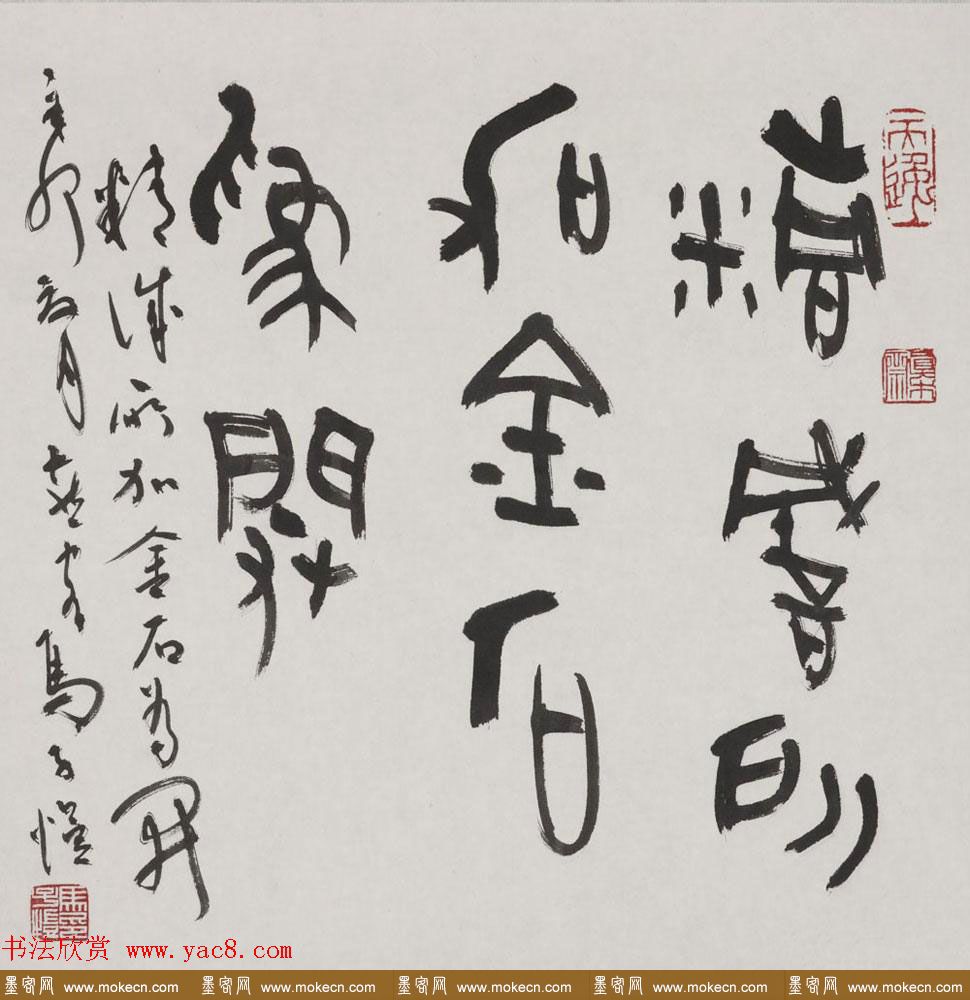 精誠所
加金石
為開
精誠所加金石為開
辛卯月馬子愷
书法欣赏 www.yac8.com
墨客网 www.mokecn.com 墨客网 www.mokecn.com 墨客网 www.mokecn.com 墨客网 www.mokecn.com 墨客网 www.mokecn.com 墨客网 www.mo